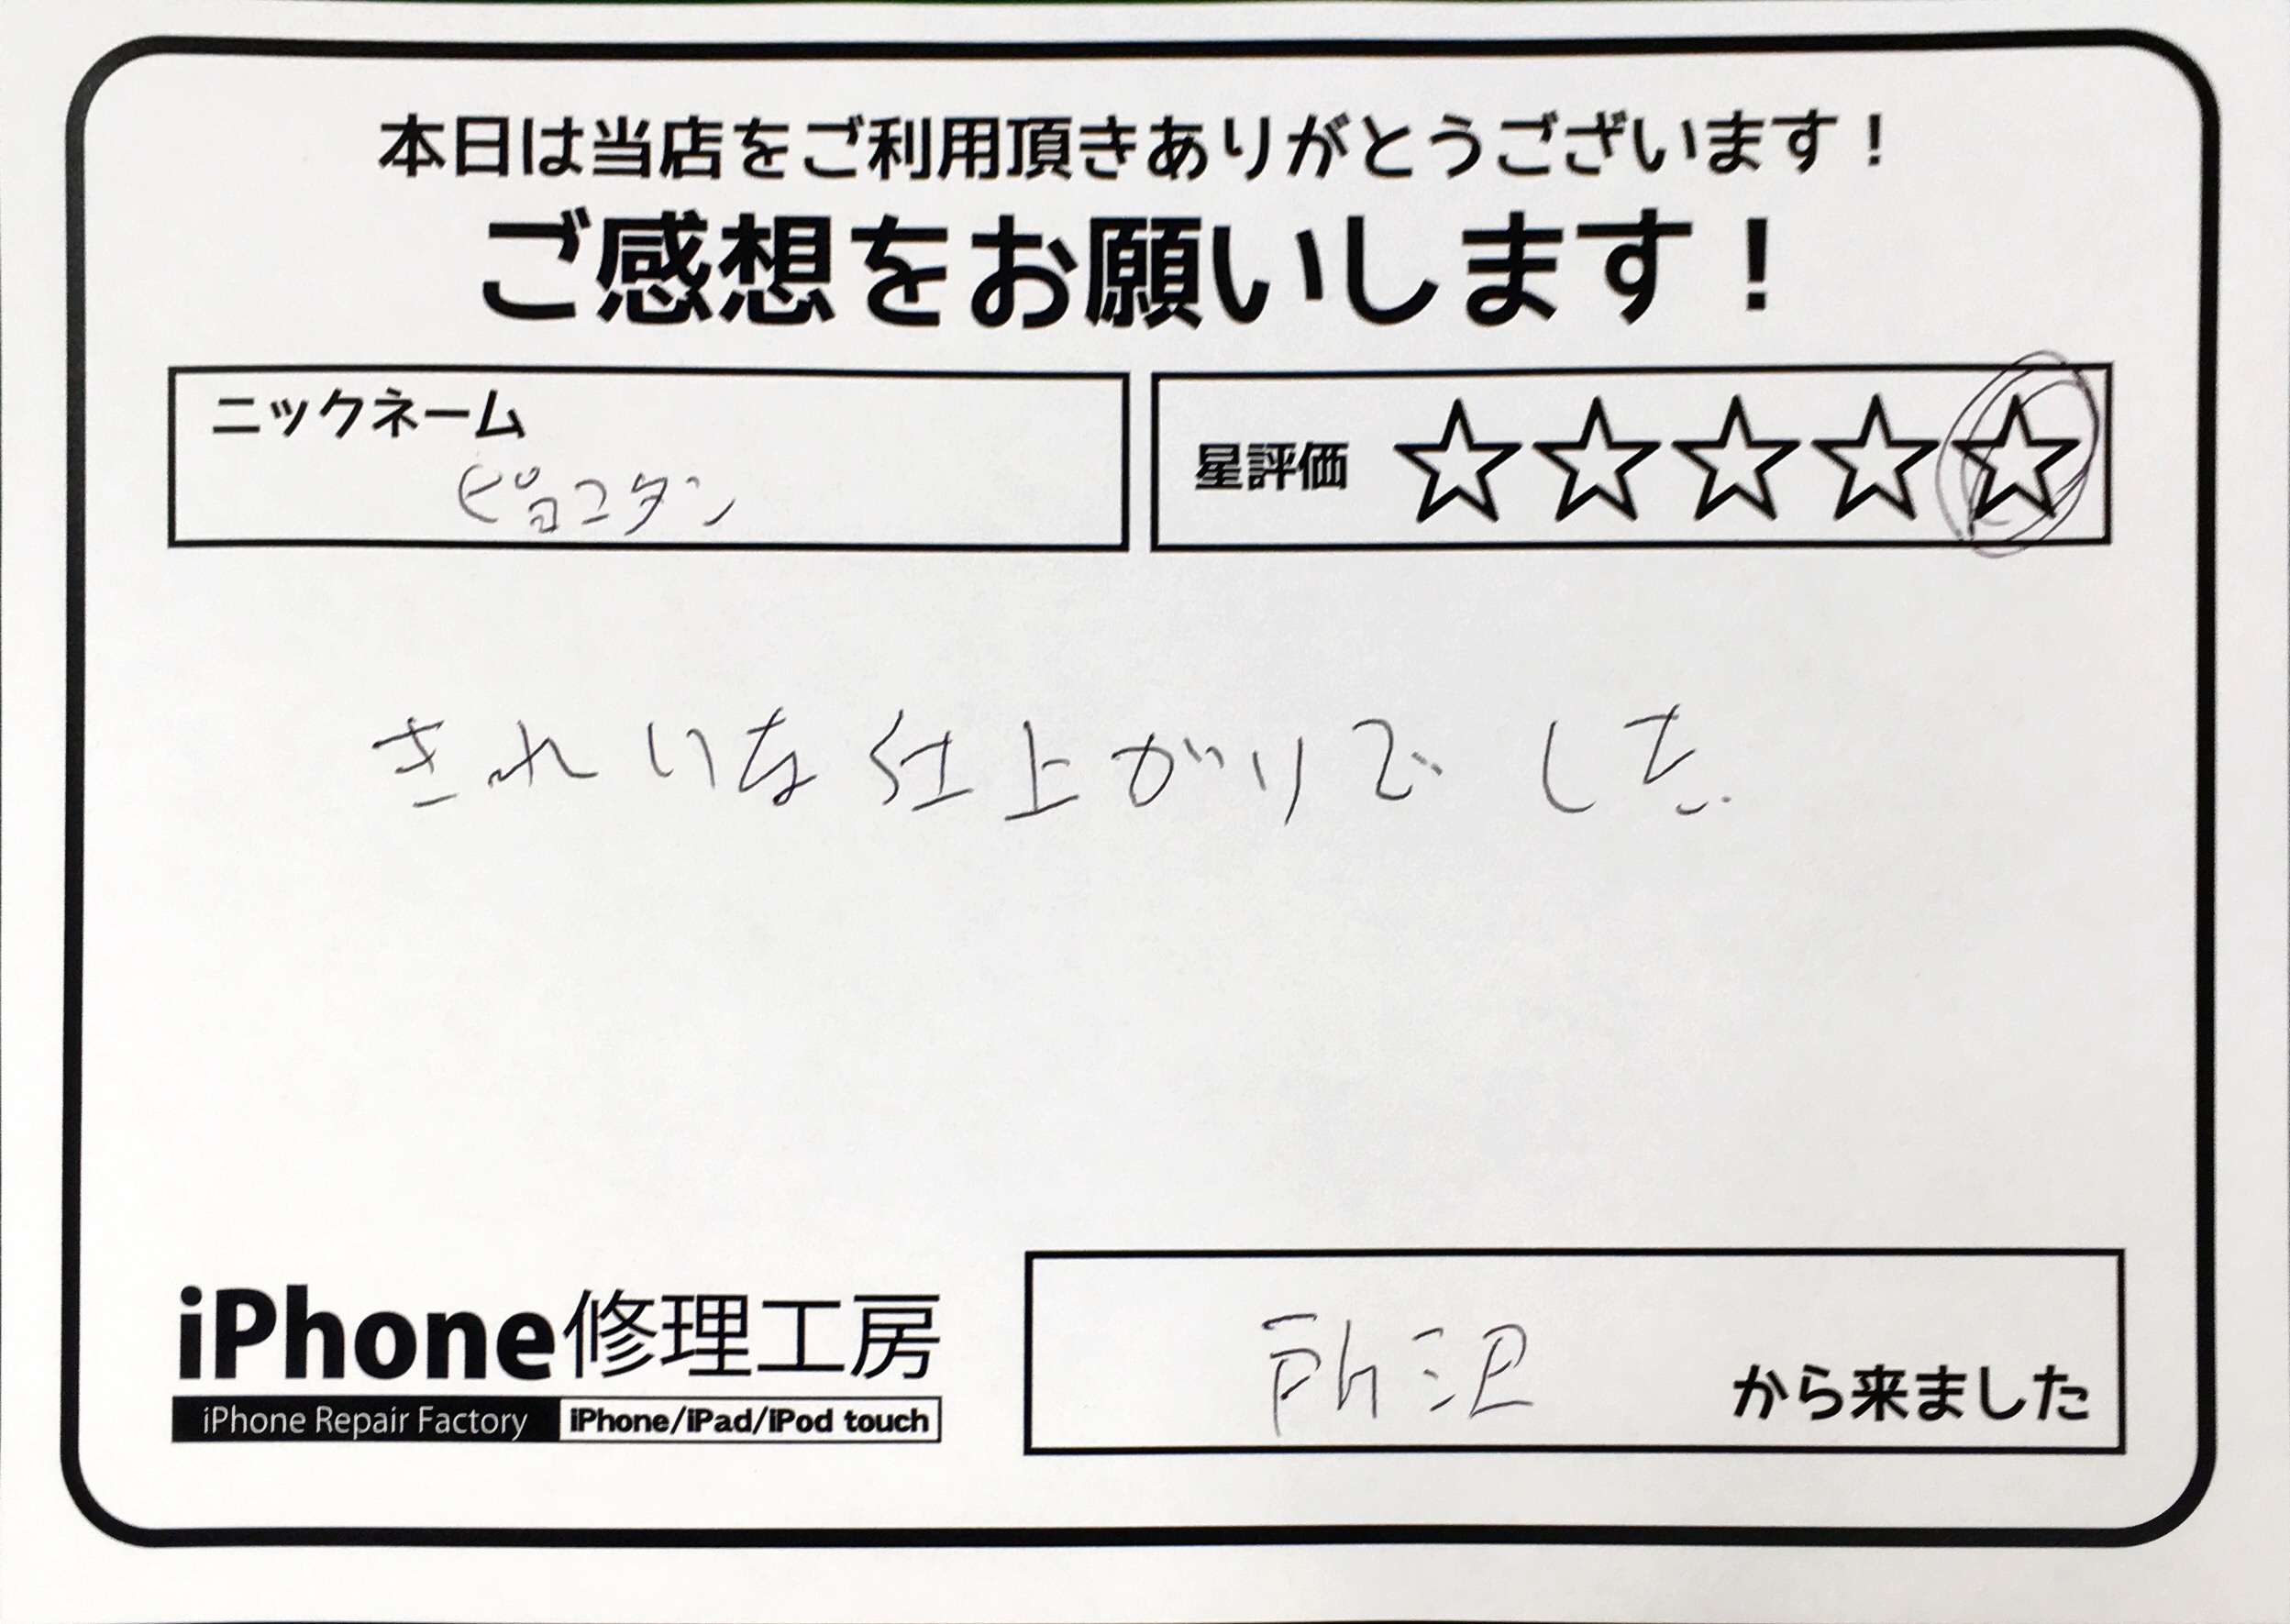 本日は当店をご利用頂きありがとうございます！
ご感想をお願いします！
ニックネーム
ピョコタン
星評価 ☆☆☆☆☆
きれいな仕上がりでした.
iPhone修理工房
iPhone Repair Factory iPhone/iPad/iPod touch
所沢 から来ました